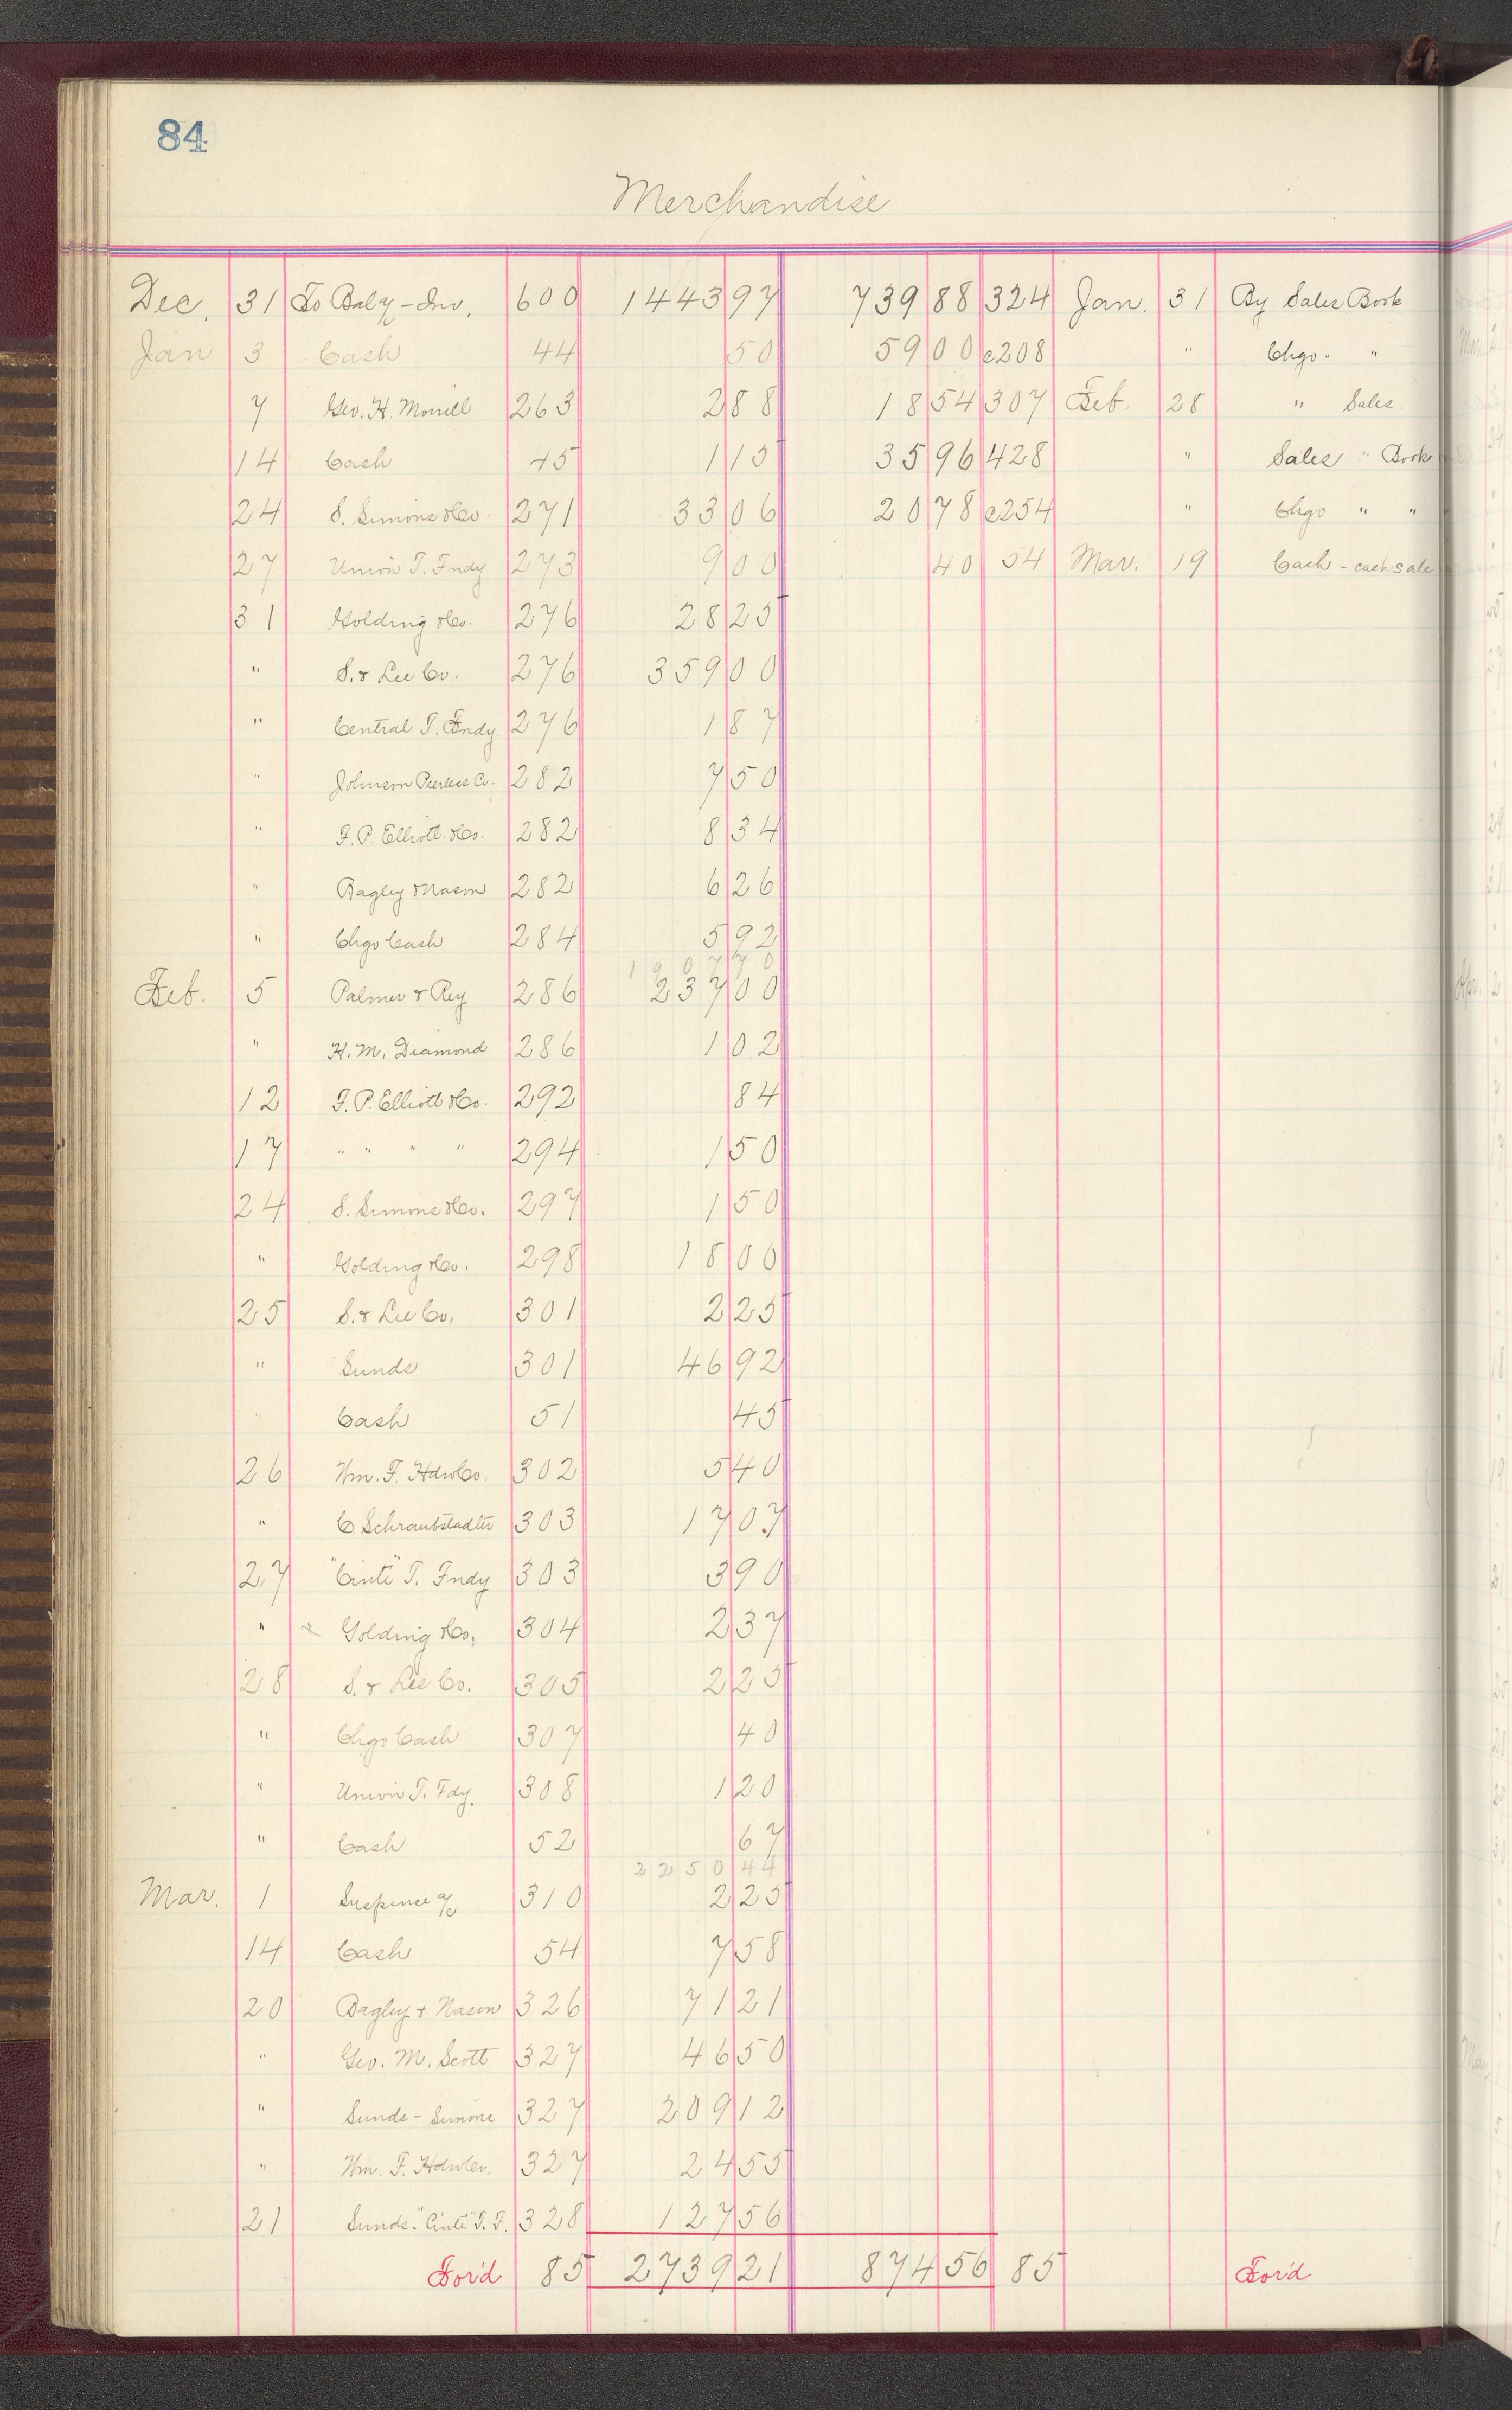 84
Merchandise
Dec. 31 To Baly - Inv. 600 1443 97 739 88 324 Jan. 31 By Sales Book
Jan 3 Cash 44 50 59 00 c208 " Chgo. "
7 Geo. H. Morrill 263 2 88 18 54 307 Feb. 28 " Sales
14 Cash 45 1 15 35 96 428 " Sales " Book
24 S. Simons & Co. 271 33 06 20 78 c254 " Chgo " "
27 Union T. Fndy 273 9 00 40 54 Mar. 19 Cash - cash sale
31 Golding & Co. 276 28 25
" S. & Lee Co. 276 359 00
" Central T. Fndy 276 1 87
" Johnson Peerless Co. 282 7 50
" F. P. Elliott & Co. 282 8 34
" Bagley & Nason 282 6 26
" Chgo Cash 284 5 92
1907 70
Feb. 5 Palmer & Rey 286 237 00
" H. M. Diamond 286 1 02
12 F. P. Elliott & Co. 292 84
17 " " " " 294 1 50
24 S. Simons & Co. 297 1 50
" Golding & Co. 298 18 00
25 S. & Lee Co. 301 2 25
" Sunds 301 46 92
Cash 51 45
26 Wm. F. Hdw Co. 302 5 40
" C. Schraubstadter 303 17 07
27 "Cinti" T. Fndy 303 3 90
" x Golding & Co. 304 2 37
28 S. & Lee Co. 305 2 25
" Chgo Cash 307 40
" Union T. Fdy. 308 1 20
" Cash 52 67
2250 44
Mar. 1 Suspense a/c 310 2 25
14 Cash 54 7 58
20 Bagley & Nason 326 71 21
" Geo. M. Scott 327 46 50
" Sunds - Simons 327 209 12
" Wm. F. Hdw Co. 327 24 55
21 Sunds - "Cinti" T. F. 328 127 56
For'd 85 2739 21 874 56 85 For'd